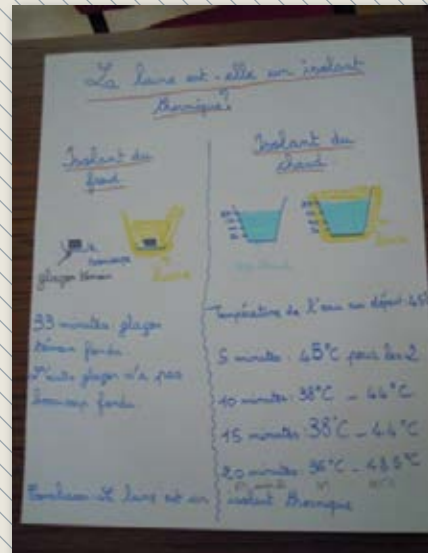 La laine est-elle un isolant
thermique?
Isolant du
froid
glaçon témoin
laine
33 minutes glaçon
témoin fondu
L'autre glaçon n'a pas
beaucoup fondu
Isolant du
chaud
laine
Température de l'eau au départ: 45°
5 minutes: 45°C pour les 2
10 minutes: 38°C - 44°C
15 minutes: 38°C - 44°C
20 minutes: 36°C
Conclusion: la laine est un isolant thermique